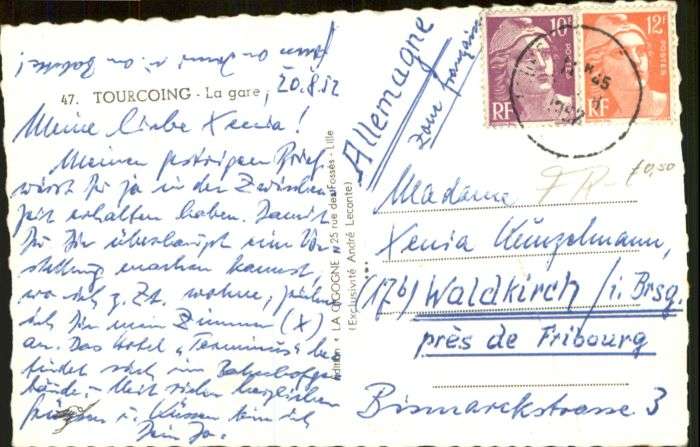 47. TOURCOING - La gare
20.8.52
Meine liebe Xenia!
Meinen gestrigen Brief
wirst Du ja in der Zwischen-
zeit erhalten haben. Damit
Du Dir überhaupt eine Vor-
stellung machen kannst,
wo ich z. Zt. wohne,
ich Dir mein Zimmer (X)
an. Das Hotel "Terminus" be-
findet sich im Bahnhofsge-
bäude. - Mit vielen herzlichen
Grüssen u. Küssen bin ich
Dein Jo.
édition • LA CIGOGNE • 25 rue des Fossés - Lille
(Exclusivité André Leconte)
Allemagne
zone française
10F
POSTES
RF
12F
POSTES
RF
1952
FR-
£0,50
Madame
Xenia Künzelmann,
(17b) Waldkirch / i. Brsg.
près de Fribourg
Bismarckstrasse 3